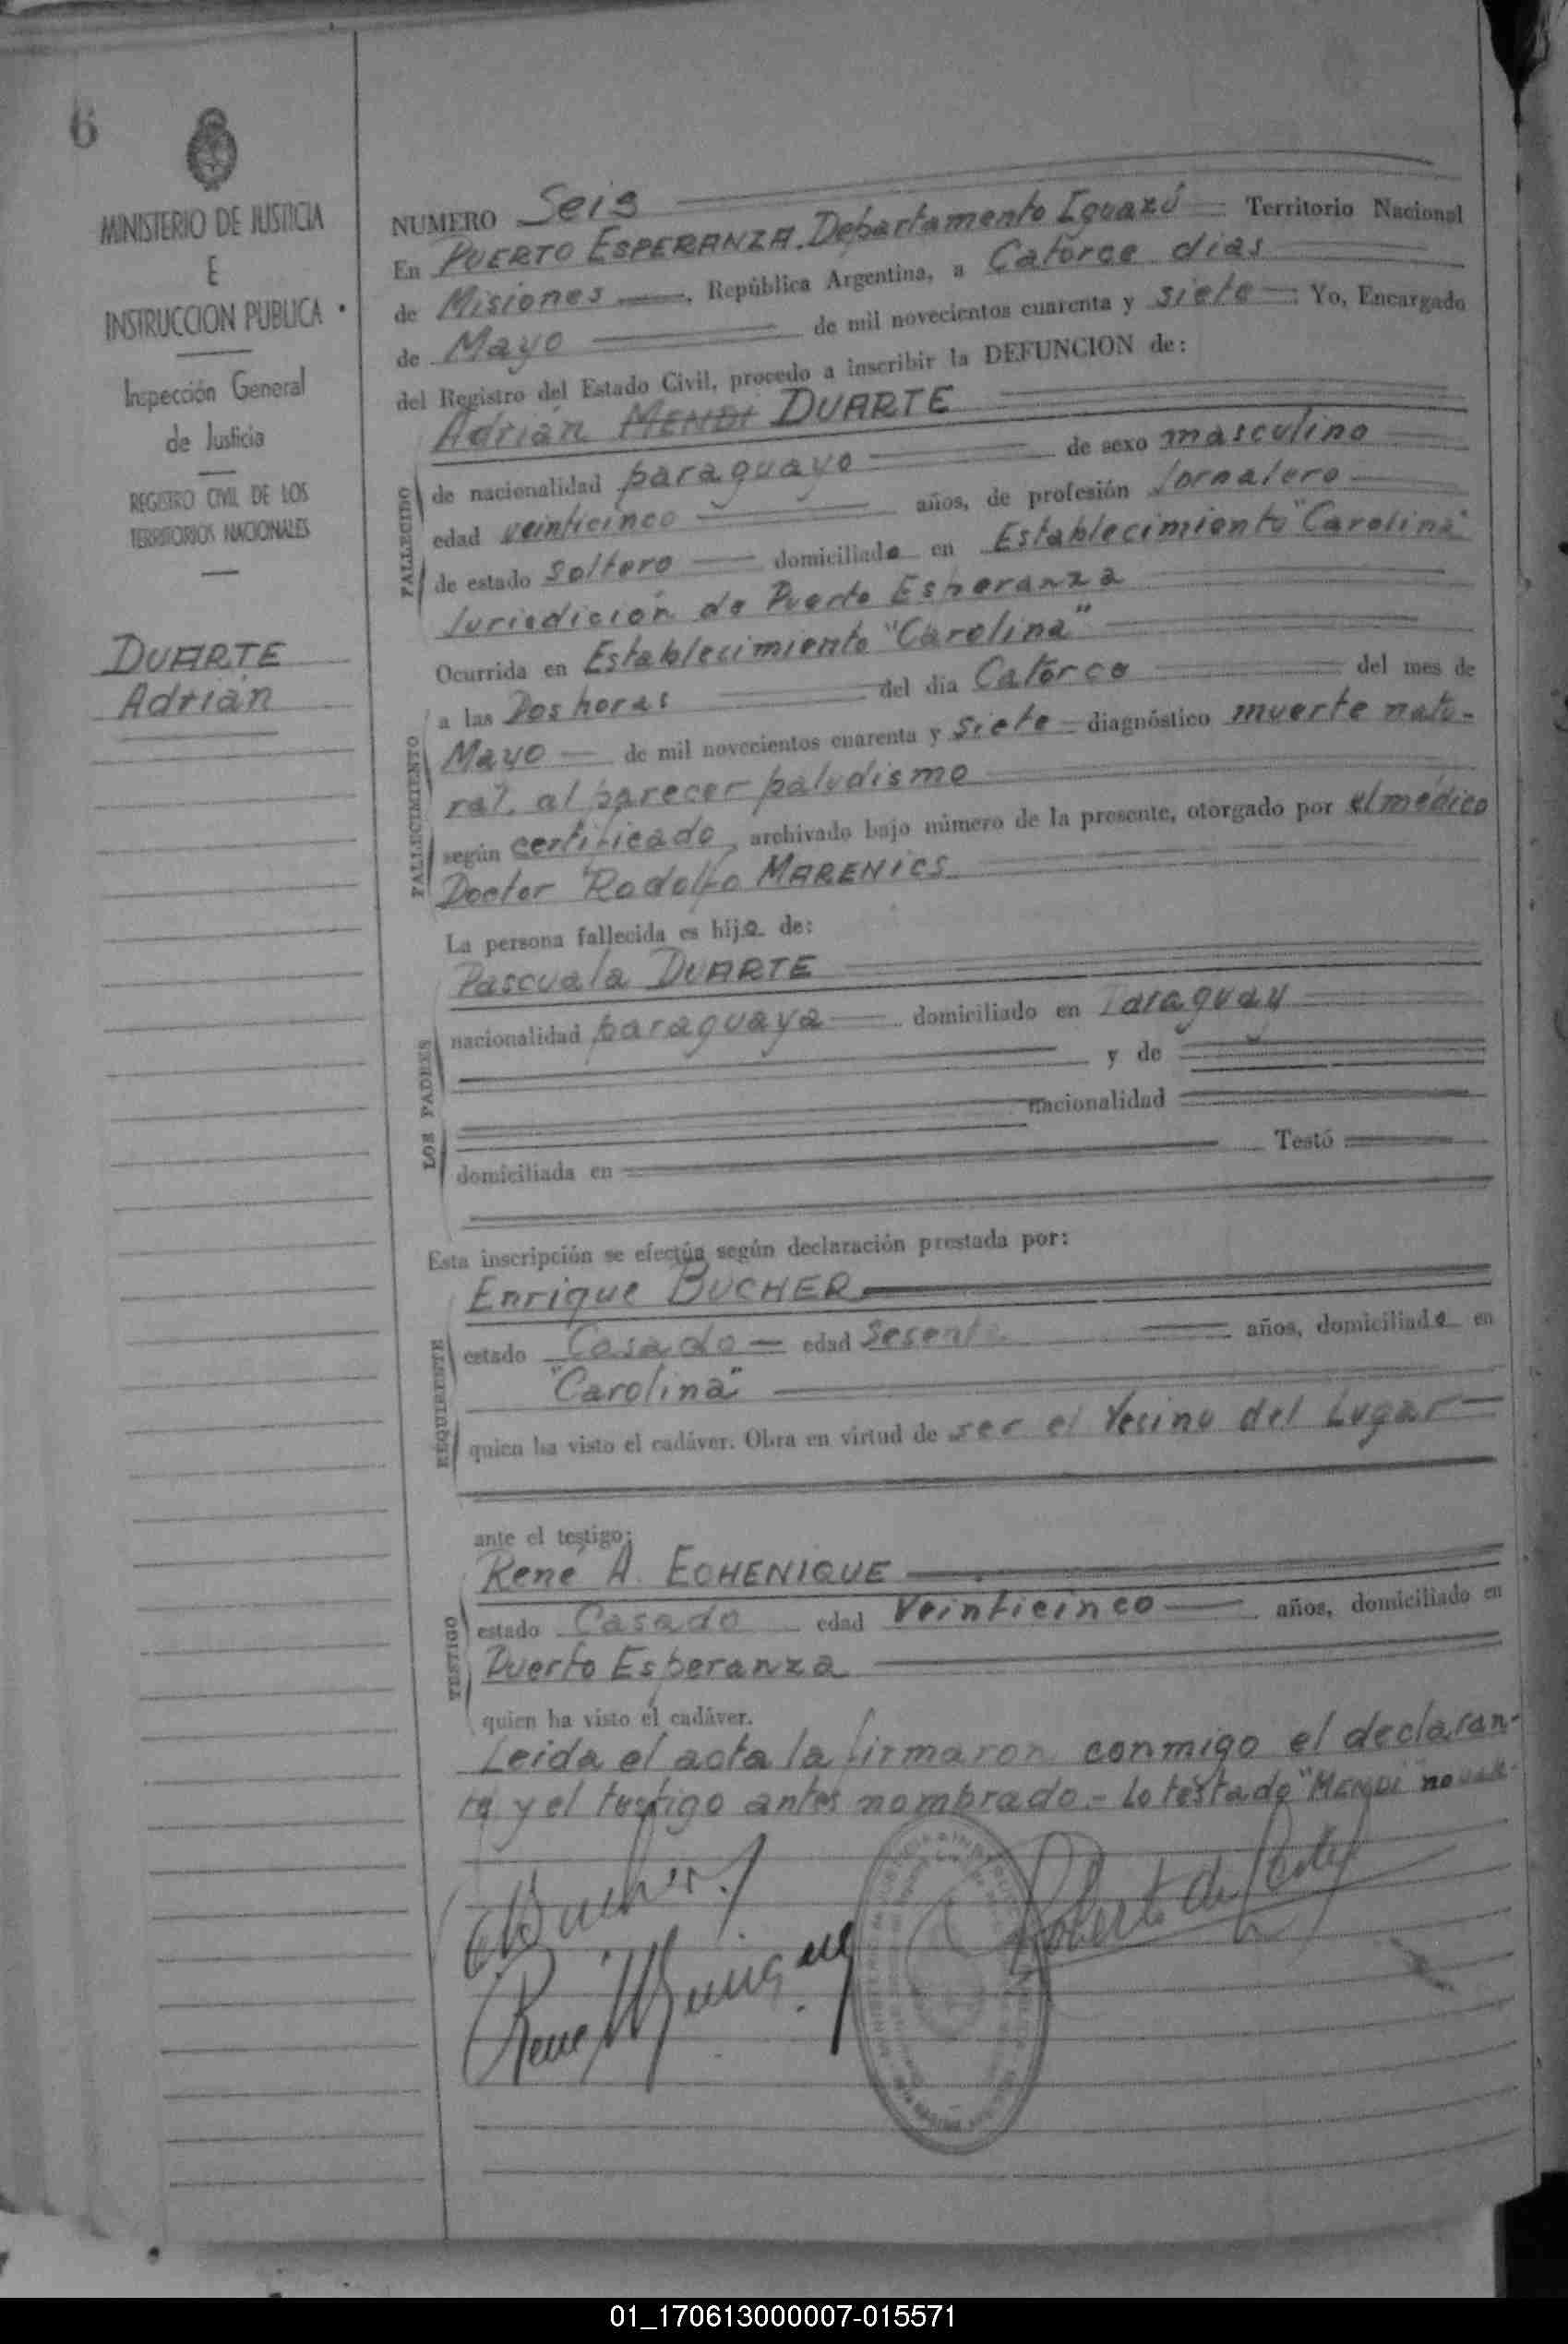 6
MINISTERIO DE JUSTICIA
E
INSTRUCCION PUBLICA
Inspección General
de Justicia
REGISTRO CIVIL DE LOS
TERRITORIOS NACIONALES
DUARTE
Adrián
NUMERO Seis
En PUERTO ESPERANZA. Departamento Iguazú Territorio Nacional
de Misiones, República Argentina, a Catorce dias
de Mayo de mil novecientos cuarenta y siete Yo, Encargado
del Registro del Estado Civil, procedo a inscribir la DEFUNCION de:
Adrián MENDI DUARTE
FALLECIDO
de nacionalidad paraguayo de sexo masculino
edad veinticinco años, de profesión Jornalero
de estado Soltero domiciliado en Establecimiento "Carolina"
Jurisdición de Puerto Esperanza
FALLECIMIENTO
Ocurrida en Establecimiento "Carolina"
a las Dos horas del día Catorce del mes de
Mayo de mil novecientos cuarenta y siete diagnóstico muerte natu-
ral, al parecer paludismo
según certificado, archivado bajo número de la presente, otorgado por el médico
Doctor Rodolfo MARENICS
LOS PADRES
La persona fallecida es hijo de:
Pascuala DUARTE
nacionalidad paraguaya domiciliado en Paraguay
y de
nacionalidad
domiciliada en Testó
Esta inscripción se efectúa según declaración prestada por:
REQUIRENTE
Enrique BUCHER
estado Casado edad Sesenta años, domiciliado en
"Carolina"
quien ha visto el cadáver. Obra en virtud de ser el Vesino del Lugar
ante el testigo:
TESTIGO
René A. ECHENIQUE
estado Casado edad Veinticinco años, domiciliado en
Puerto Esperanza
quien ha visto el cadáver.
Leida el acta la firmaron conmigo el declaran-
te y el testigo antes nombrado.- Lo testado "MENDI" no vale-
EBucher
01_170613000007-015571